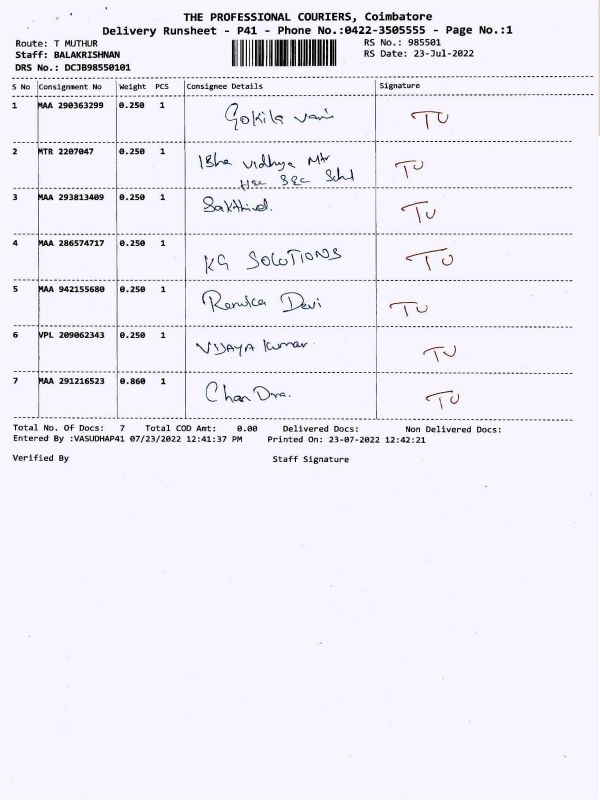 THE PROFESSIONAL COURIERS, Coimbatore
Delivery Runsheet - P41 - Phone No.:0422-3505555 - Page No.:1
Route: T MUTHUR RS No.: 985501
Staff: BALAKRISHNAN RS Date: 23-Jul-2022
DRS No.: DCJB98550101
S No Consignment No Weight PCS Consignee Details Signature
1 MAA 290363299 0.250 1 Gokila Vani TU
2 MTR 2207047 0.250 1 Isha Vidhya Mtr TU
Hsc Sec Schl
3 MAA 293813409 0.250 1 Sakthivel. TU
4 MAA 286574717 0.250 1 KG SOLUTIONS TU
5 MAA 942155680 0.250 1 Renuka Devi TU
6 VPL 209062343 0.250 1 VIJAYA Kumar TU
7 MAA 291216523 0.860 1 Chan Dra. TU
Total No. Of Docs: 7 Total COD Amt: 0.00 Delivered Docs: Non Delivered Docs:
Entered By :VASUDHAP41 07/23/2022 12:41:37 PM Printed On: 23-07-2022 12:42:21
Verified By Staff Signature